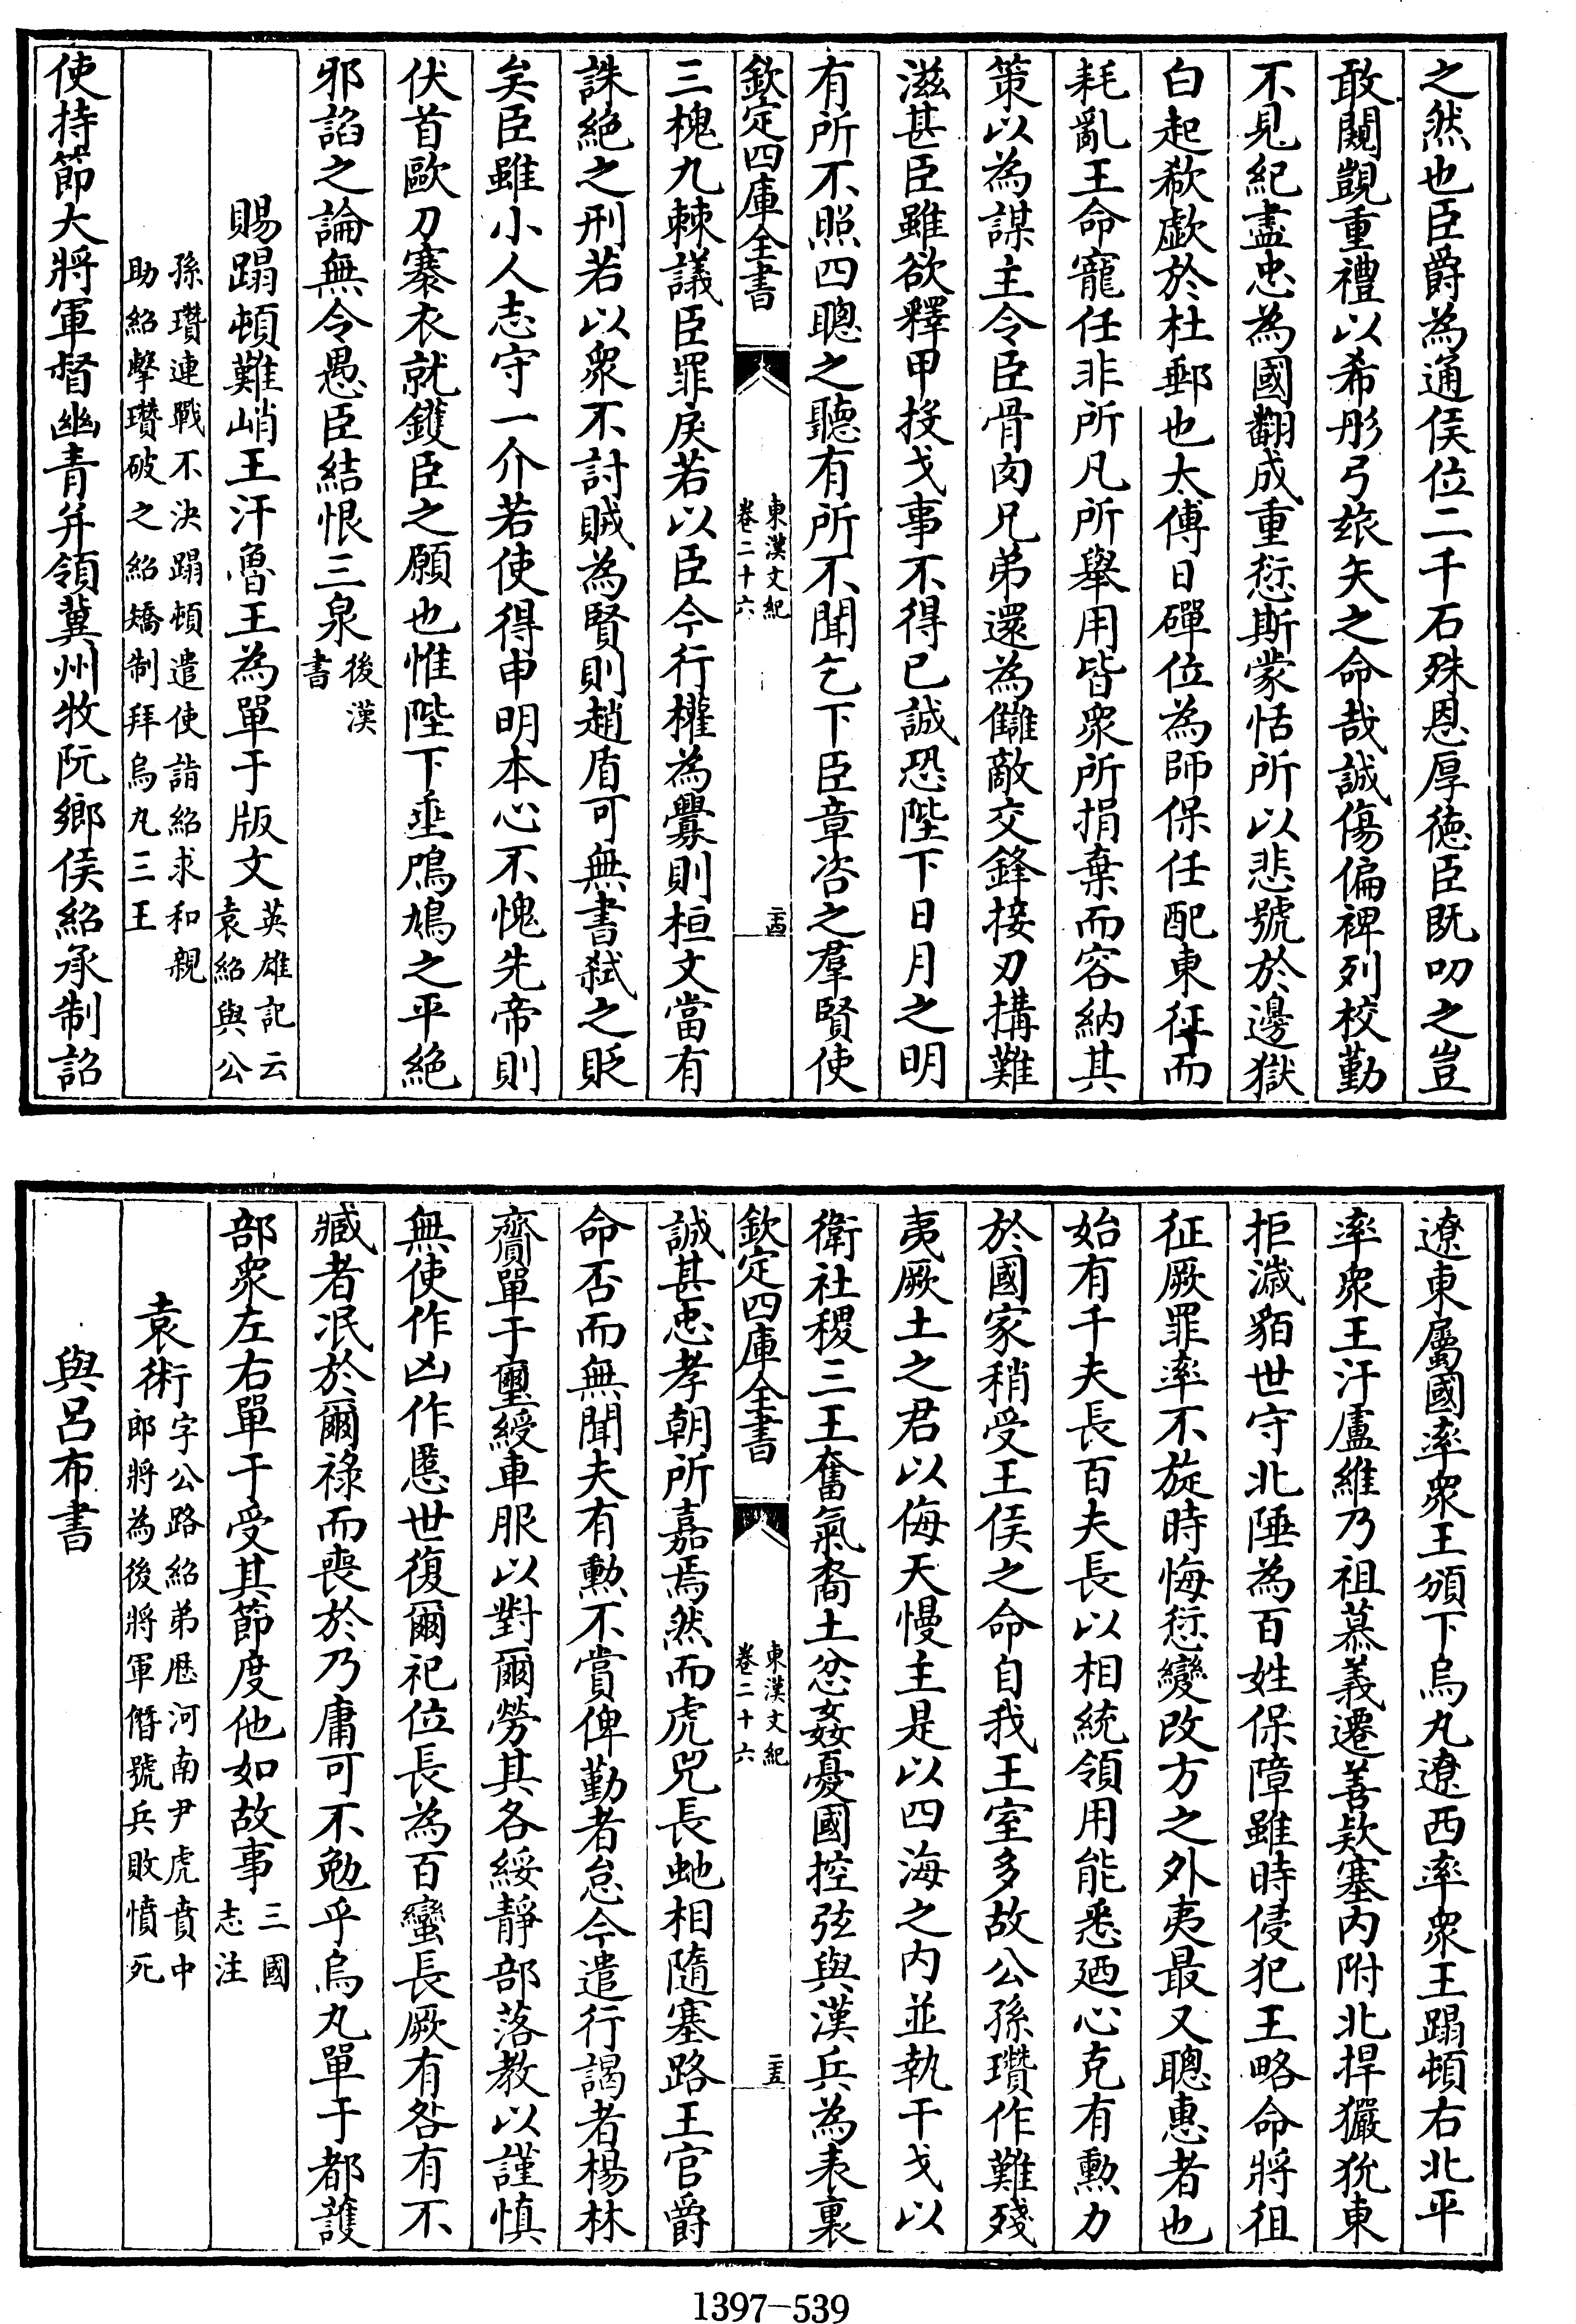 之然也臣爵為通侯位二千石殊恩厚徳臣既叨之豈
敢闚覬重禮以希彤弓玈矢之命哉誠傷偏裨列校勤
不見紀盡忠為國翻成重愆斯蒙恬所以悲號於邊獄
白起欷歔於杜郵也太傅日磾位為師保任配東征而
耗亂王命寵任非所凡所舉用皆衆所捐棄而容納其
策以為謀主令臣骨肉兄弟還為讎敵交鋒接刃搆難
滋甚臣雖欲釋甲投戈事不得已誠恐陛下日月之明
有所不照四聰之聽有所不聞乞下臣章咨之羣賢使
欽定四庫全書
東漢文紀
卷二十六
二十四
三槐九棘議臣罪戾若以臣今行權為釁則桓文當有
誅絶之刑若以衆不討賊為賢則趙盾可無書弑之貶
矣臣雖小人志守一介若使得申明本心不愧先帝則
伏首歐刀褰衣就鑊臣之願也惟陛下垂鳲鳩之平絶
邪諂之論無令愚臣結恨三泉後漢
書
賜蹋頓難峭王汗魯王為單于版文英雄記云
袁紹與公
孫瓚連戰不決蹋頓遣使詣紹求和親
助紹擊瓚破之紹矯制拜烏丸三王
使持節大將軍督幽青并領冀州牧阮鄉侯紹承制詔
遼東屬國率衆王頒下烏丸遼西率衆王蹋頓右北平
率衆王汗盧維乃祖慕義遷善欵塞内附北捍玁狁東
拒濊貊世守北陲為百姓保障雖時侵犯王略命將徂
征厥罪率不旋時悔愆變改方之外夷最又聰惠者也
始有千夫長百夫長以相統領用能悉廼心克有勲力
於國家稍受王侯之命自我王室多故公孫瓚作難殘
夷厥土之君以侮天慢主是以四海之内並執干戈以
衛社稷三王奮氣裔土忿姦憂國控弦與漢兵為表裏
欽定四庫全書
東漢文紀
卷二十六
二十五
誠甚忠孝朝所嘉焉然而虎兕長虵相隨塞路王官爵
命否而無聞夫有勲不賞俾勤者怠今遣行謁者楊林
齎單于璽綬車服以對爾勞其各綏靜部落教以謹慎
無使作凶作慝世復爾祀位長為百蠻長厥有咎有不
臧者泯於爾祿而喪於乃庸可不勉乎烏丸單于都護
部衆左右單于受其節度他如故事三國
志注
袁術字公路紹弟歴河南尹虎賁中
郎將為後將軍僭號兵敗憤死
與吕布書
1397—539